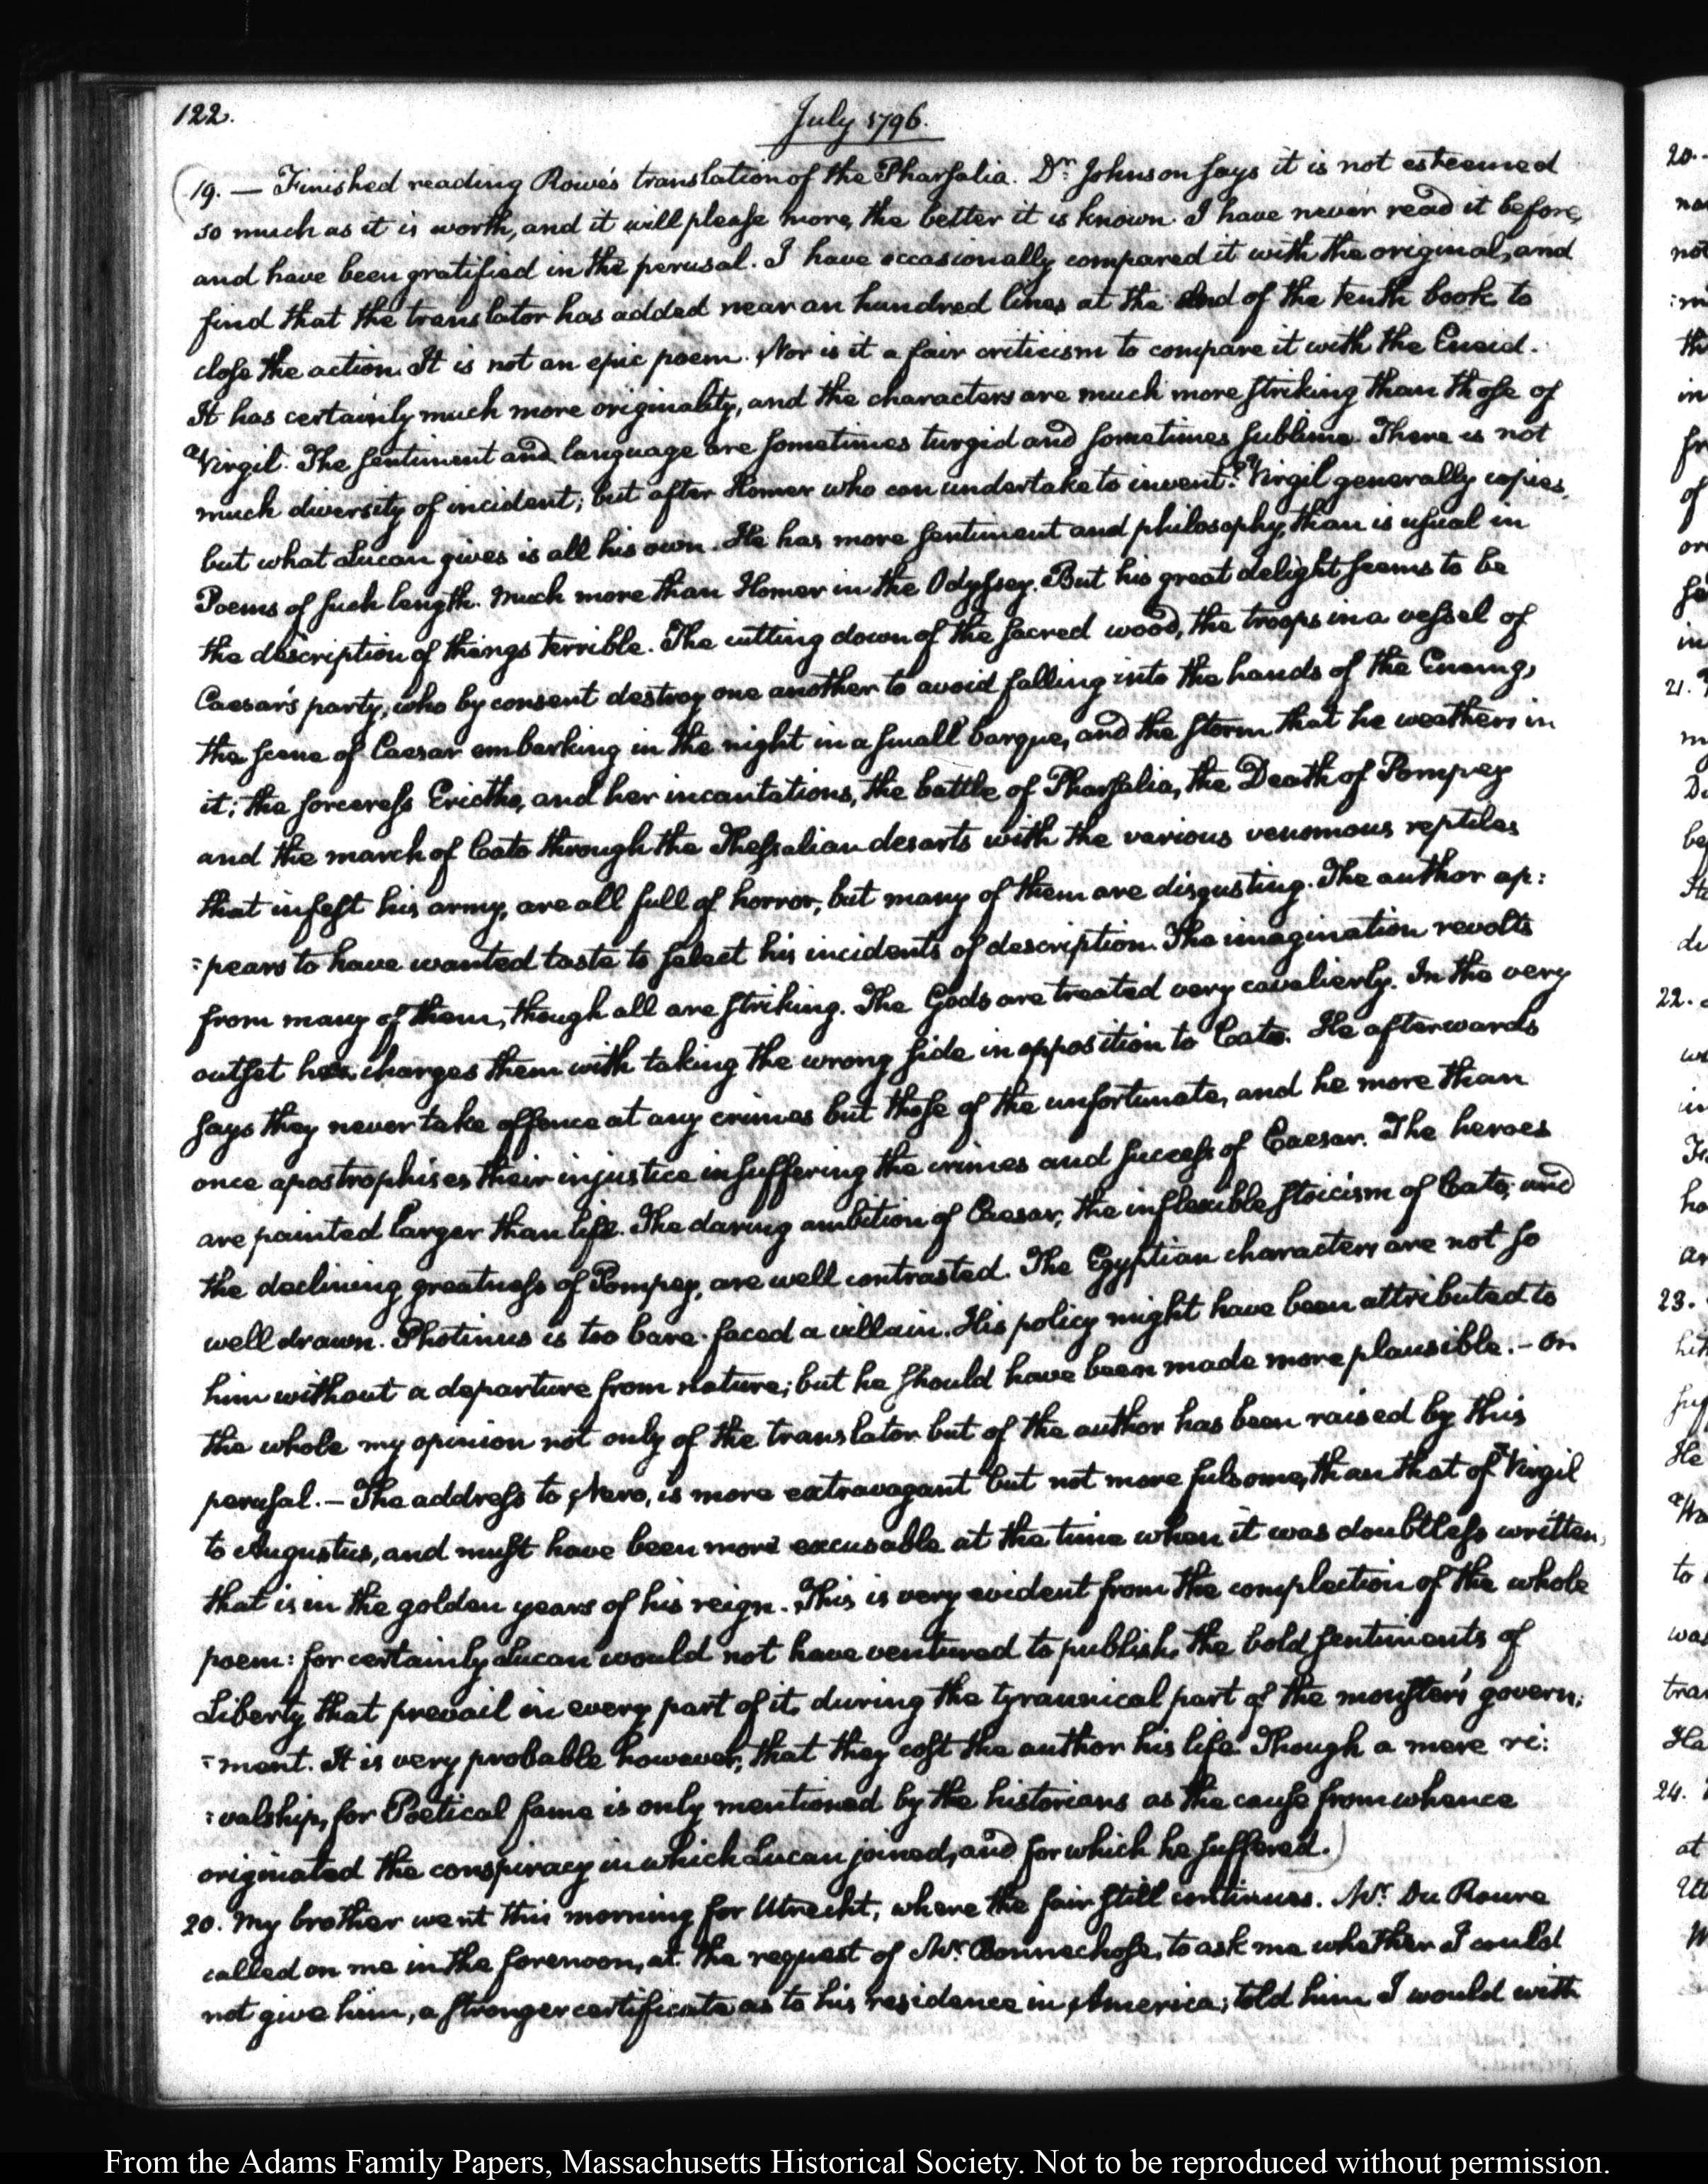 122.
July 1796.
19. — Finished reading Rowe's translation of the Pharsalia. Dr. Johnson says it is not esteemed
so much as it is worth, and it will please more, the better it is known. I have never read it before,
and have been gratified in the perusal. I have occasionally compared it with the original, and
find that the translator has added near an hundred lines at the end of the tenth book, to
close the action. It is not an epic poem. Nor is it a fair criticism to compare it with the Eneid.
It has certainly much more originality, and the characters are much more striking than those of
Virgil. The sentiment and language are sometimes turgid and sometimes sublime. There is not
much diversity of incident; but after Homer who can undertake to invent? Virgil generally copies,
but what Lucan gives is all his own. He has more sentiment and philosophy, than is usual in
Poems of such length. Much more than Homer in the Odyssey. But his great delight seems to be
the description of things terrible. The cutting down of the sacred wood, the troops in a vessel of
Caesar's party, who by consent destroy one another to avoid falling into the hands of the Enemy,
the scene of Caesar embarking in the night in a small barque, and the storm that he weathers in
it; the sorceress Erictho, and her incantations, the battle of Pharsalia, the Death of Pompey
and the march of Cato through the Thessalian desarts with the various venomous reptiles
that infest his army, are all full of horror, but many of them are disgusting. The author ap:
:pears to have wanted taste to select his incidents of description. The imagination revolts
from many of them, though all are striking. The Gods are treated very cavalierly. In the very
outset he charges them with taking the wrong side in opposition to Cato. He afterwards
says they never take offence at any crimes but those of the unfortunate, and he more than
once apostrophises their injustice in suffering the crimes and success of Caesar. The heroes
are painted larger than life. The daring ambition of Caesar, the inflexible stoicism of Cato, and
the declining greatness of Pompey, are well contrasted. The Egyptian characters are not so
well drawn. Photinus is too bare-faced a villain. His policy might have been attributed to
him without a departure from nature; but he should have been made more plausible. – On
the whole my opinion not only of the translator but of the author has been raised by this
perusal. – The address to Nero, is more extravagant but not more fulsome, than that of Virgil
to Augustus, and must have been more excusable at the time when it was doubtless written,
that is in the golden years of his reign. This is very evident from the complection of the whole
poem: for certainly Lucan would not have ventured to publish, the bold sentiments of
Liberty that prevail in every part of it, during the tyrannical part of the monster's govern:
:ment. It is very probable however, that they cost the author his life. Though a mere ri:
:valship, for Poetical fame is only mentioned by the historians as the cause from whence
originated the conspiracy in which Lucan joined, and for which he suffered.
20. My brother went this morning for Utrecht, where the fair still continues. Mr. Du Roure
called on me in the forenoon, at the request of Mr. Bonnechose, to ask me whether I could
not give him, a stronger certificate as to his residence in America; told him I would with
From the Adams Family Papers, Massachusetts Historical Society. Not to be reproduced without permission.